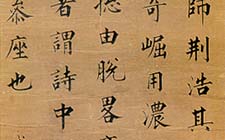 師荆浩其
奇崛用濃
惗由脫畧
者謂詩中
泰座也